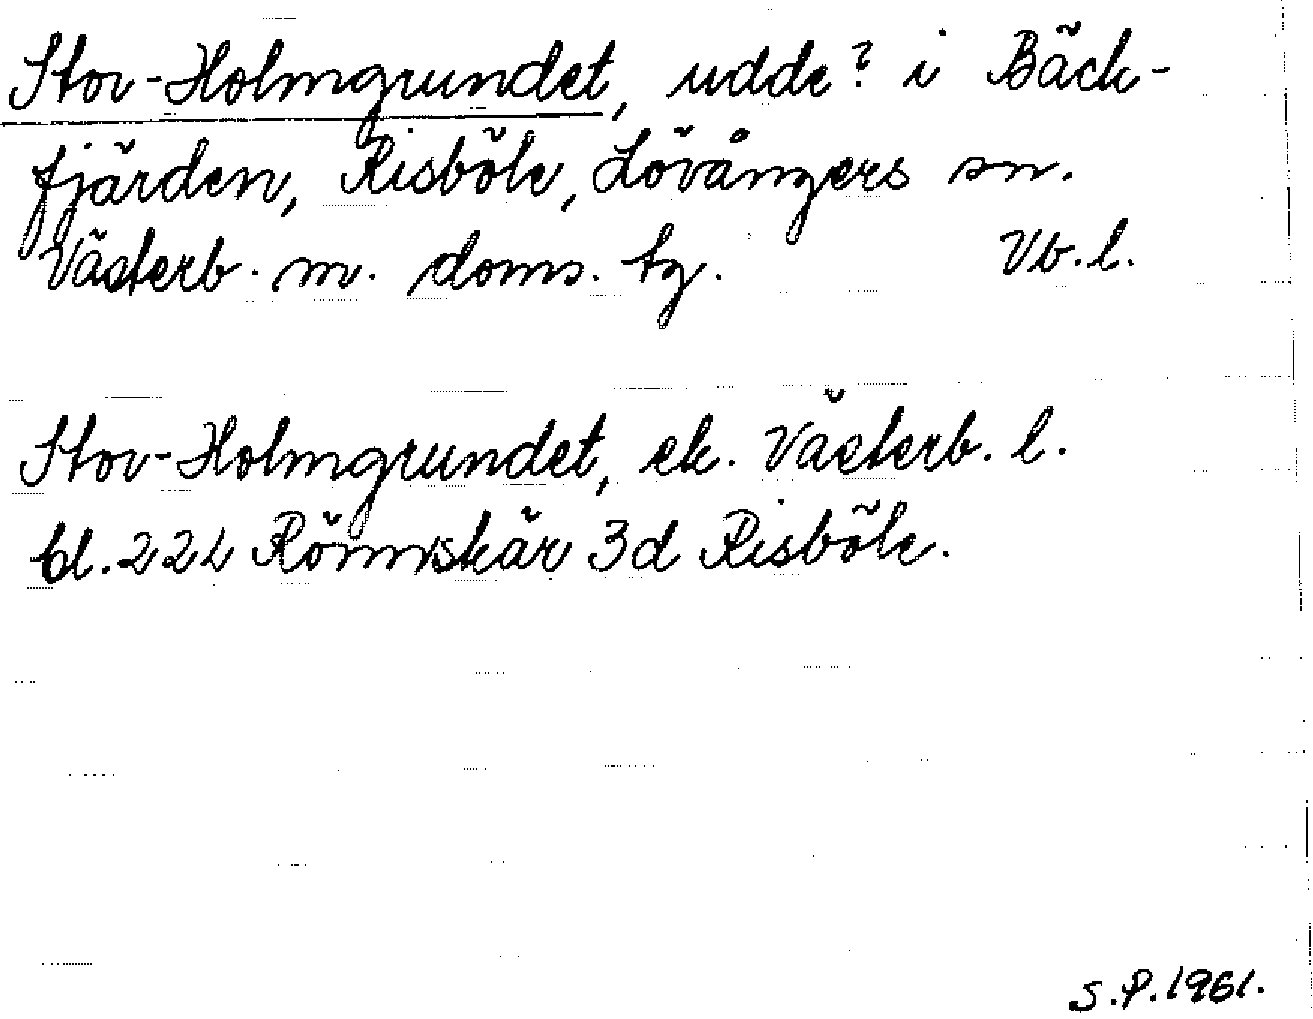 Stor-Holmgrundet, udde? i Bäck-
fjärden, Risböle, Lövångers sn.
Västerb. m. doms. tg. Vb. l.
Stor-Holmgrundet, ek. Västerb. l.
bl. 22L Rönnskär 3d Risböle.
S.P. 1961.